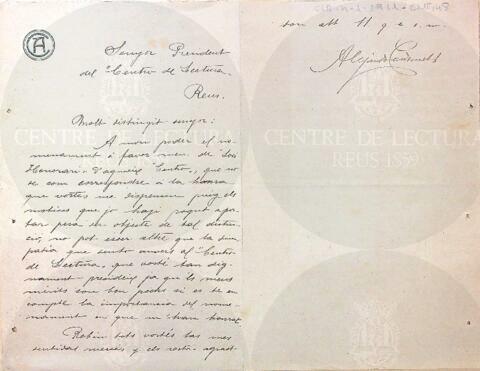 Senyor President
del "Centro de Lectura.
Reus.
Molt distingit senyor:
A mon poder el no-
menament á favor meu de "Soci
Honorari" d'aqueix "Centro", que no
se com correspondre á la honra
que vostés me dispensen puig els
motius que jo hagi pogut apor-
tar pera ser objecte de tal distin-
ció, no pot esser altre que la sim-
patia que sento envers al "Centro
de Lectura" que vosté tan dig-
nament presideix ja que els meus
mérits son ben pochs si es te en
compte la importancia del nome-
nament en que m'han honrat
Rebin tots vostés las mes
sentidas mercés y els resta agrait
son att. 
Alejandro
CENTRE DE LECTURA
CENTRE DE LECTURA
REUS 1859